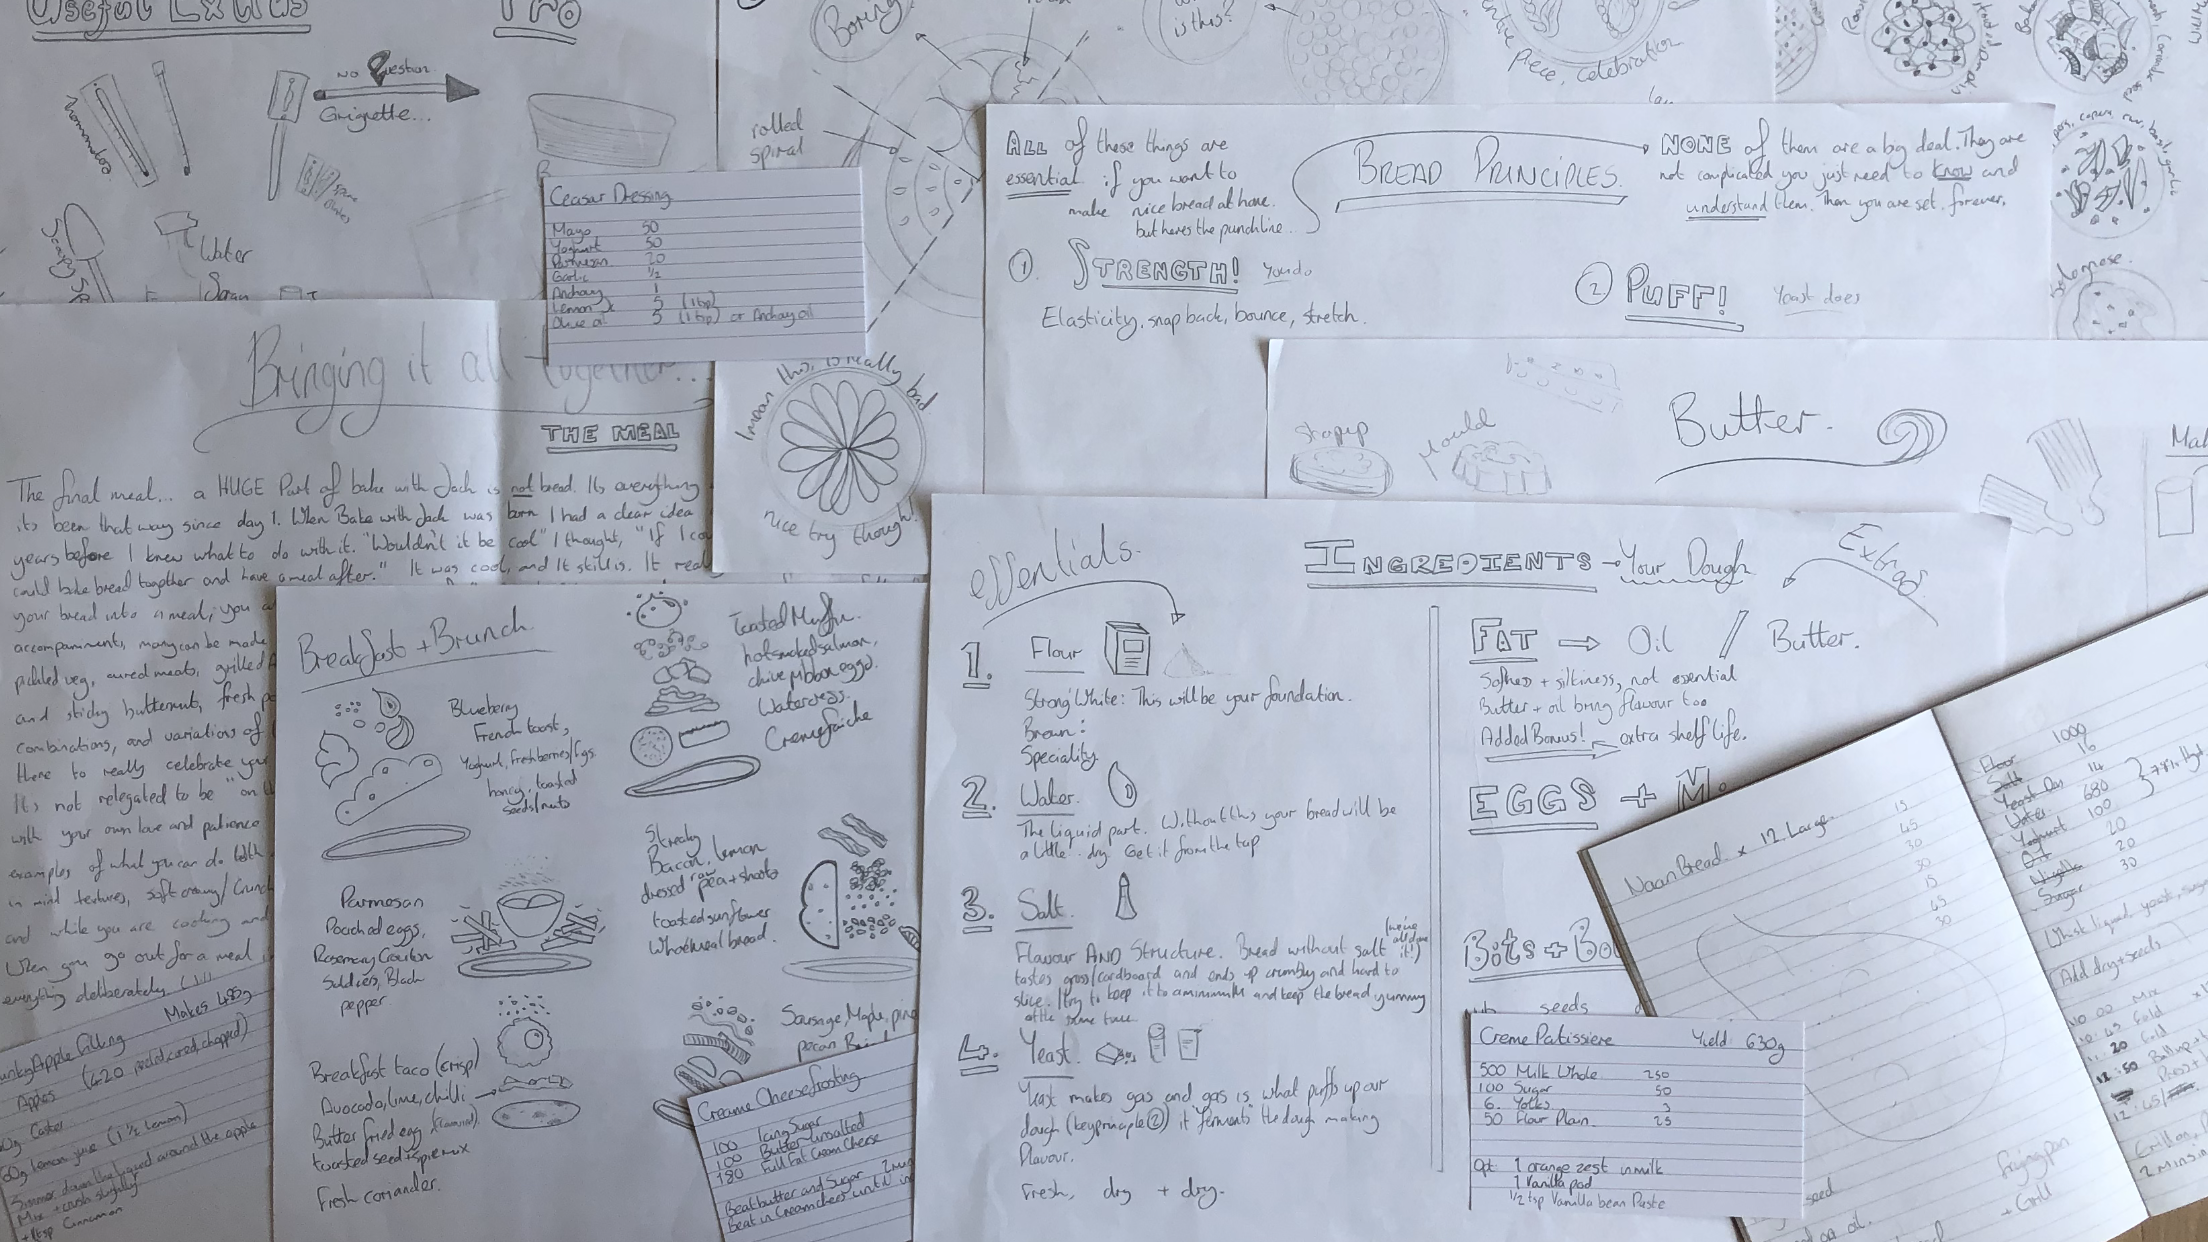 Useful Extras
Pro
No Question
Grignette...
Water
Ceasar Dressing
Mayo 50
Yoghurt 50
Parmesan 20
Garlic ½
Anchovy 1
Lemon Jc 5 (1 tsp)
Olive oil 5 (1 tsp) or Anchovy oil
Boring
is this?
rolled
spiral
piece, celebration
Bolognese.
I mean this is really bad
nice try though!
BREAD PRINCIPLES.
ALL of these things are
essential if you want to
make nice bread at home.
but heres the punchline.
NONE of them are a big deal. They are
not complicated you just need to know and
understand them. Then you are set. forever.
1. STRENGTH! You do
Elasticity, snap back, bounce, stretch.
2 PUFF! Yeast does
Butter.
Mould
Bringing it all together...
THE MEAL
The final meal... a HUGE Part of bake with Jack is not bread. Its everything
its been that way since day 1. When Bake with Jack was born I had a clear idea
years before I knew what to do with it. "Wouldn't it be cool" I thought, "If I
could bake bread together and have a meal after." It was cool, and it still is. It
your bread into a meal, you
accompaniments, many can be made
pickled veg, cured meats, grilled
and sticky butternut, fresh
combinations, and variations of
there to really celebrate
It's not relegated to be "on
with your own love and patience
examples of what you can do with
in mind textures, soft creamy/Crunch
and while you are cooking and
When you go out for a meal
everything deliberately
Breakfast + Brunch.
Blueberry
French toast,
Yoghurt, fresh berries/figs.
honey, toasted
seeds/nuts
Toasted Muffin.
hot smoked salmon,
chive ribbon eggs.
Watercress.
Creme fraiche
Parmesan
Poached eggs,
Rosemary Crouton
Soldiers, Black
pepper
Streaky
Bacon, lemon
dressed raw pea + shoots
toasted sunflower
Wholemeal bread.
Breakfast taco (crisp)
Avocado, lime, chilli
Butter fried egg
toasted seed + spice mix
Fresh coriander.
Sausage, Maple,
pecan
Apple Filling Makes 485g
Apples (420 peeled, cored, chopped)
Caster
lemon juice (1 ½ lemon)
Simmer down the liquid around the apple
Mix + crush slightly
+ 1tsp Cinnamon
Creame Cheese frosting
100 Icing Sugar
100 Butter unsalted
180 Full Fat Cream Cheese
Beat butter and Sugar 2 mins
Beat in Cream cheese until
INGREDIENTS - Your Dough
essentials.
Extras
1. Flour
Strong White: This will be your foundation.
Brown:
Speciality
2. Water.
The liquid part. Without this your bread will be
a little.. dry. Get it from the tap
3. Salt.
Flavour AND Structure. Bread without salt (we've all done it!)
tastes gross/cardboard and ends up crumbly and hard to
slice. I try to keep it to a minimum and keep the bread yummy
at the same time
4. Yeast.
Yeast makes gas and gas is what puffs up our
dough (key principle 2) it "ferments" the dough making
flavour.
Fresh, dry + dry.
FAT → Oil / Butter.
Softness + silkiness, not essential
Butter + oil bring flavour too
Added Bonus! extra shelf life.
EGGS + M
Bits + Bo
seeds
Creme Patissiere Yield 630g
500 Milk Whole 250
100 Sugar 50
6. Yolks 3
50 Flour Plain. 25
Opt 1 orange zest in milk
1 Vanilla pod
½ tsp Vanilla bean Paste
Naan Bread x 12 Large.
15
45
30
30
15
45
30
Flour 1000
Salt 16
Yeast Dry 14
Water 680
Yoghurt 100
Oil 20
Nigella 20
Sugar 30
Whisk liquid, yeast,
Add dry + seeds
Mix
Fold
Fold
12:50 Ball up
frying pan
+ Grill